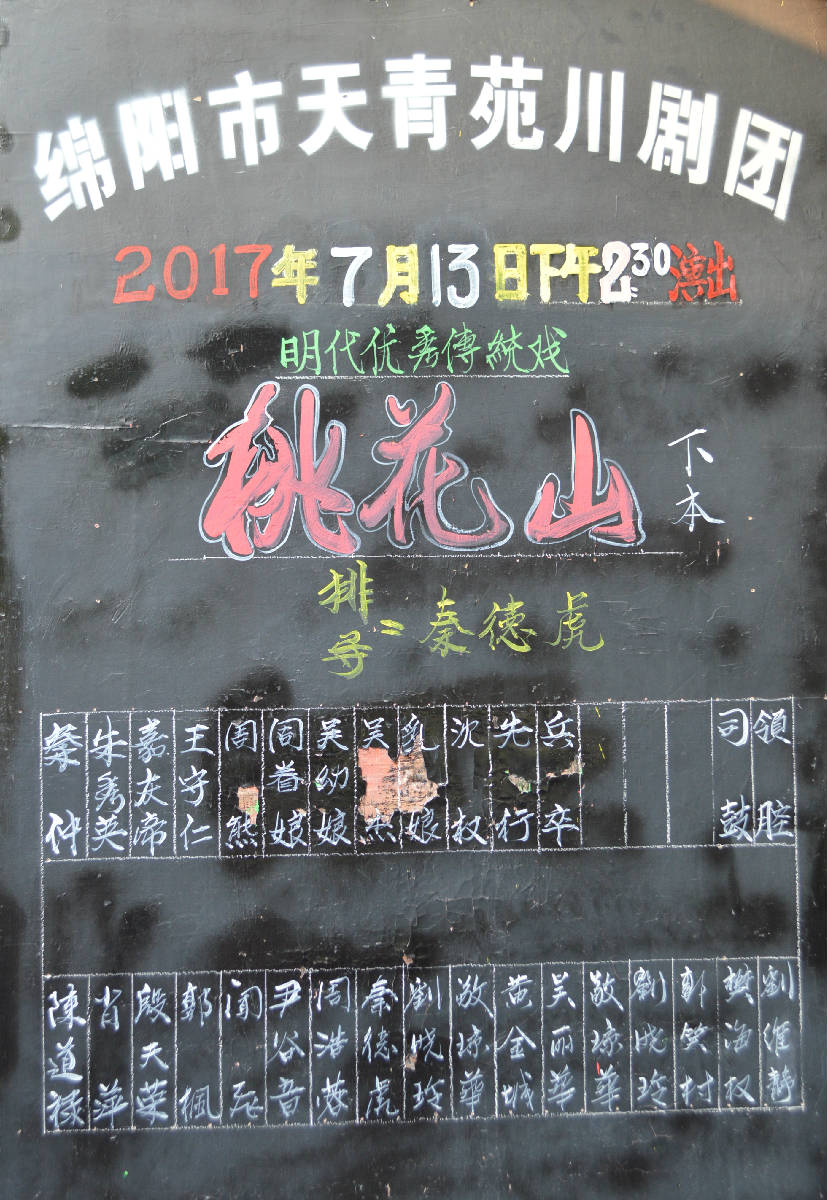 绵阳市天青苑川剧团
2017年7月13日下午2:30演出
明代优秀傳統戏
桃花山
下本
排导=秦德虎
蔡仲 朱秀英 嘉庆帝 王守仁 周熊 阎眷娘 吴幼娘 吴杰 乳娘 沈权 先行 兵卒 司鼓 領腔
陳道禄 肖萍 殷天荣 郭楓 尹谷音 周浩蓉 秦德虎 劉晓玲 敬琼華 黄全城 吴丽華 敬琼華 劉晓玲 郭笑村 樊海权 劉維静